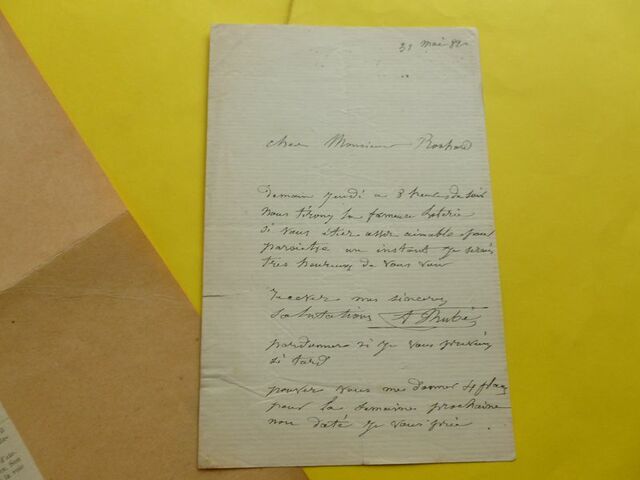 31 mai 82
cher Monsieur Rochard
Demain Jeudi a 8 heures du soir
nous tirons la fameuse Loterie
si vous étiez assez aimable pour
paroistre un instant je serais
très heureux de vous voir
recever mes sinceres
salutations A
pardonner si je vous préviens
si tard
pouvez vous me donner 4
pour la semaine prochaine
non daté je vous prie